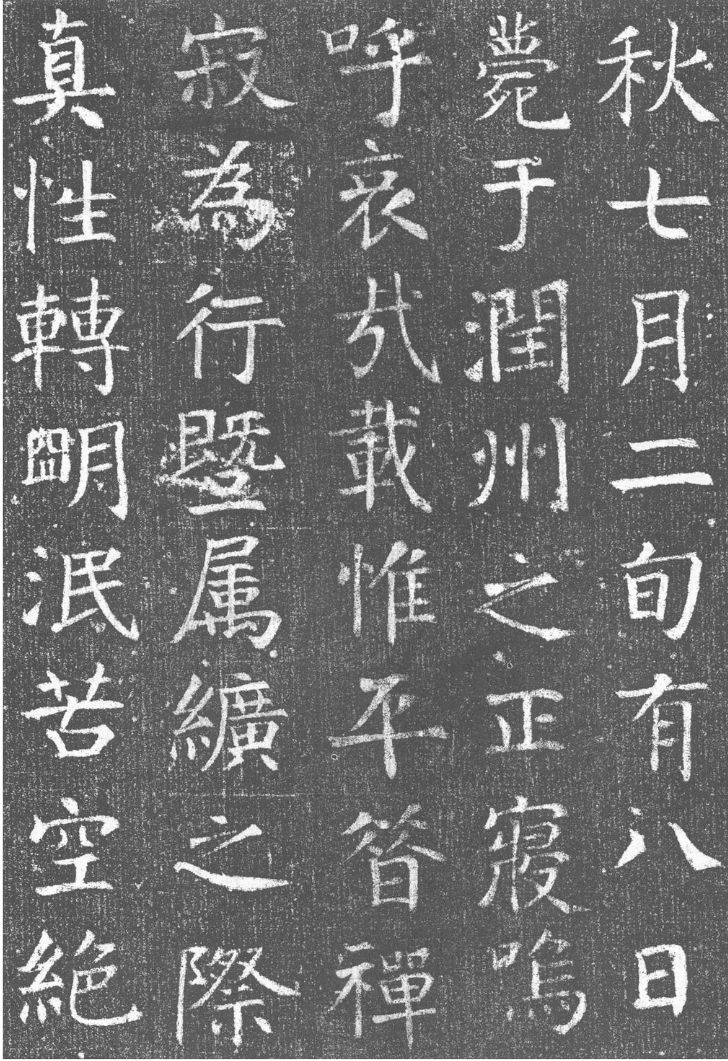 秋七月二旬有八日
薨于潤州之正寢嗚
呼哀哉載惟平昔禪
寂為行暨属纊之際
真性轉明泯苦空絶